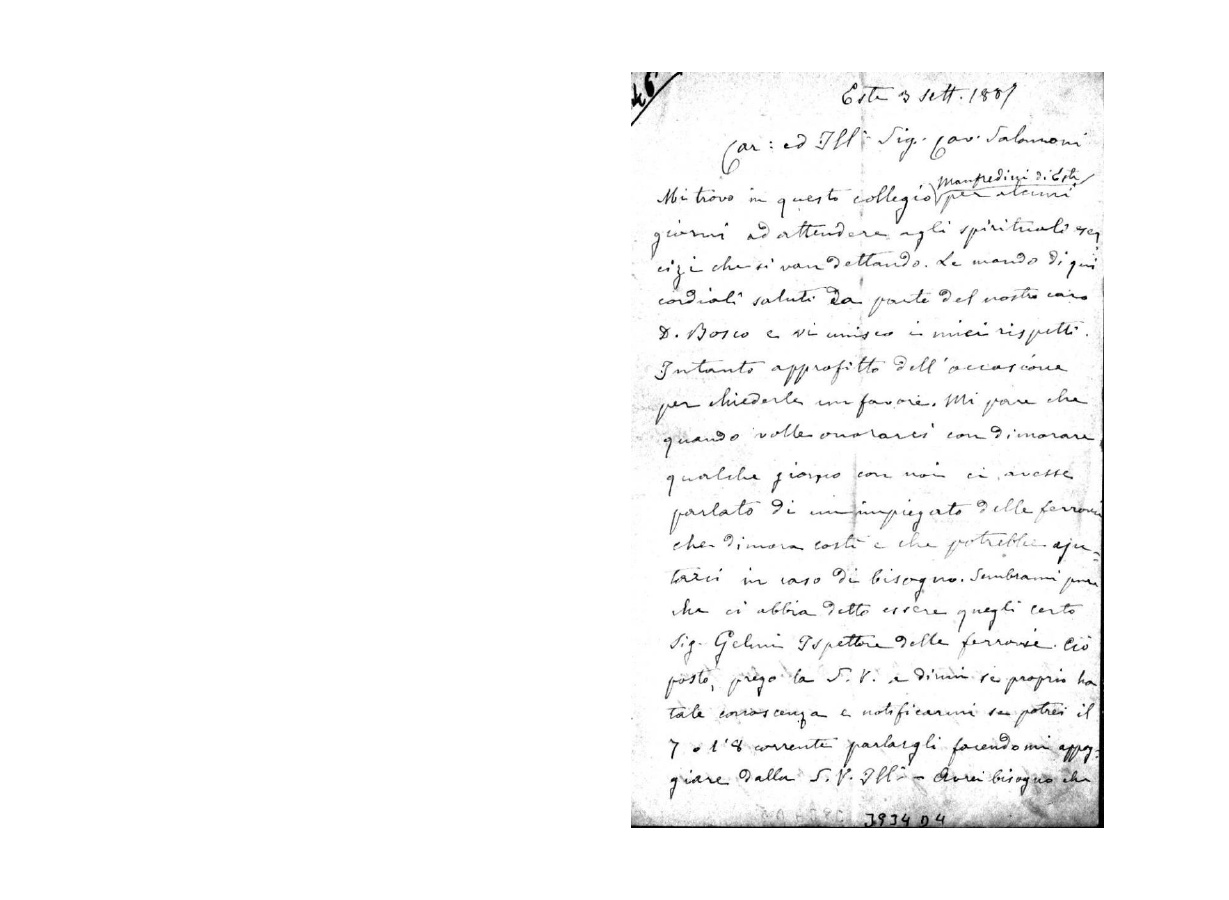 Este 3 sett. 1887
Car: ed Ill. Sig. Cav. Salomoni
Manfredini di Este
Mi trovo in questo collegio per alcuni
giorni ad attendere agli spirituali eser
cizi che si van dettando. Le mando di qui
cordiali saluti da parte del nostro caro
D. Bosco e vi unisco i miei rispetti.
Intanto approfitto dell'occasione
per chiederle un favore. Mi pare che
quando volle onorarci con dimorare
qualche giorno con noi ci avesse
parlato di un impiegato delle ferrovie
che dimora costì e che potrebbe aju-
tarci in caso di bisogno. Sembrami pure
che ci abbia detto essere quegli certo
Sig. Ispettore delle ferrovie. Ciò
posto, prego la S.V. a dirmi se proprio ha
tale conoscenza e notificarmi se potrei il
7 o l'8 corrente parlargli facendomi appog-
giare dalla S.V. Ill. - Avrei bisogno che
3934 D4